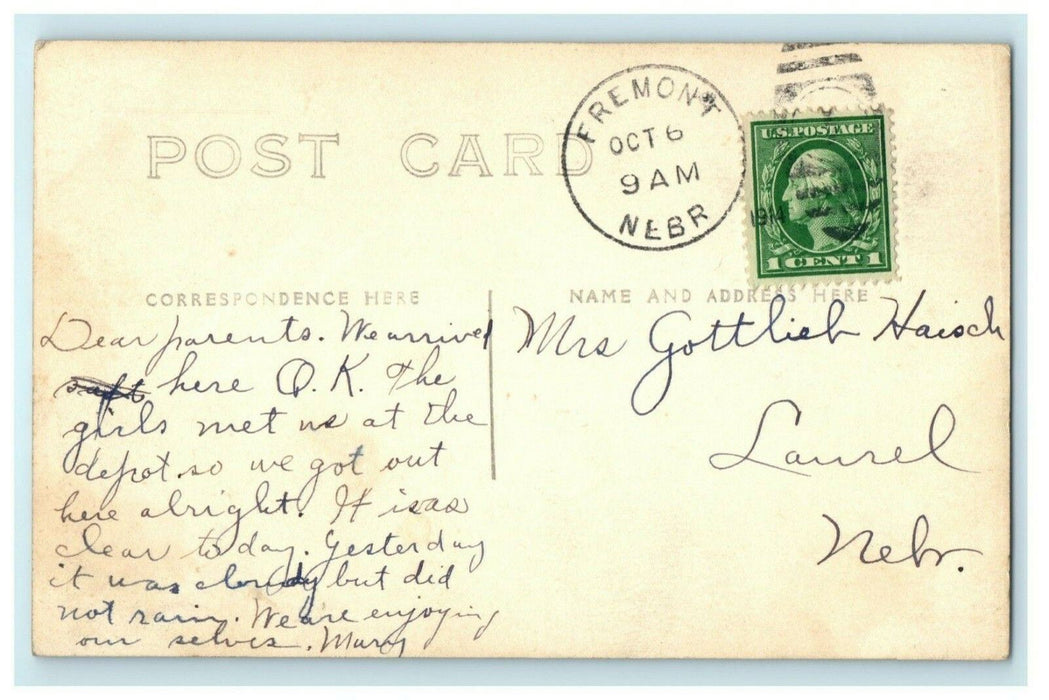 POST CARD
FREMONT
OCT 6
9 AM
NEBR
1914
U.S. POSTAGE
1 CENT 1
CORRESPONDENCE HERE
NAME AND ADDRESS HERE
Dear parents. We arrived
here O.K. The
girls met us at the
depot. so we got out
here alright. It is
clear to day. Yesterday
it was cloudy but did
not rain. We are enjoying
our selves. Mary
Mrs Gottlieb Haisch
Laurel
Nebr.